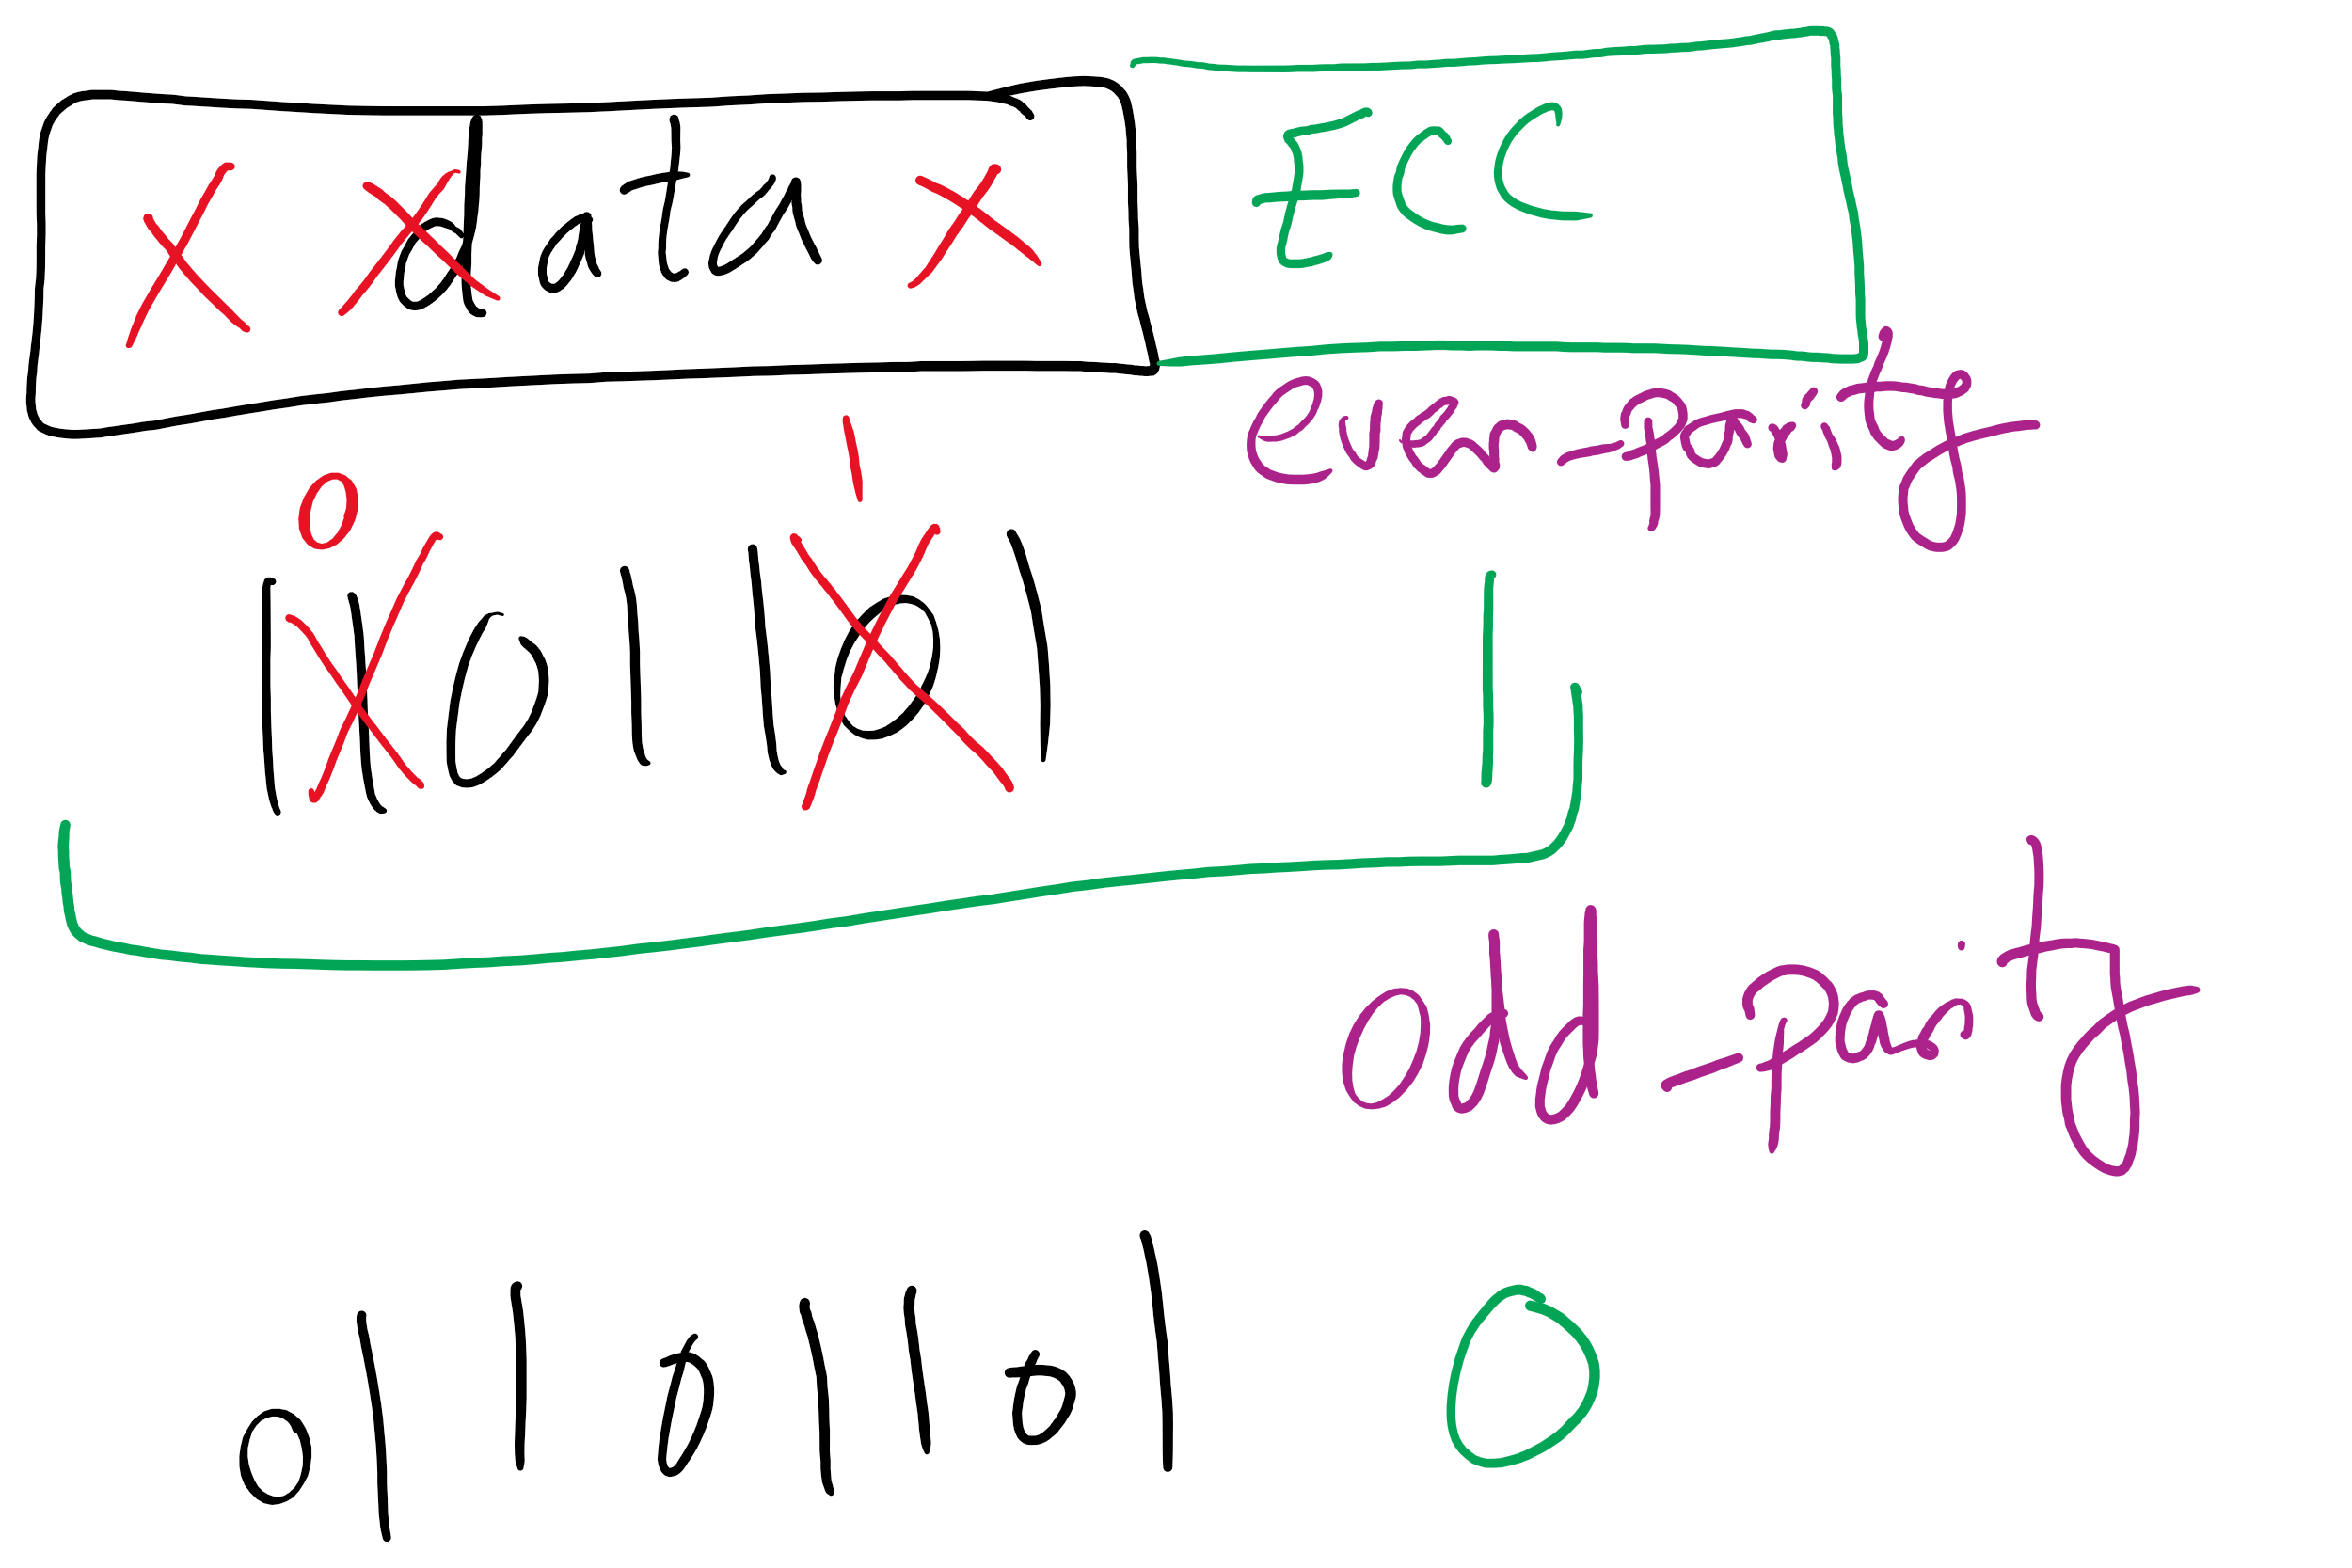 data ECC
even-parity
0 1
1 1 0 1 1 0 1 1
odd-parity
0 1 1 0 1 1 0 1 0